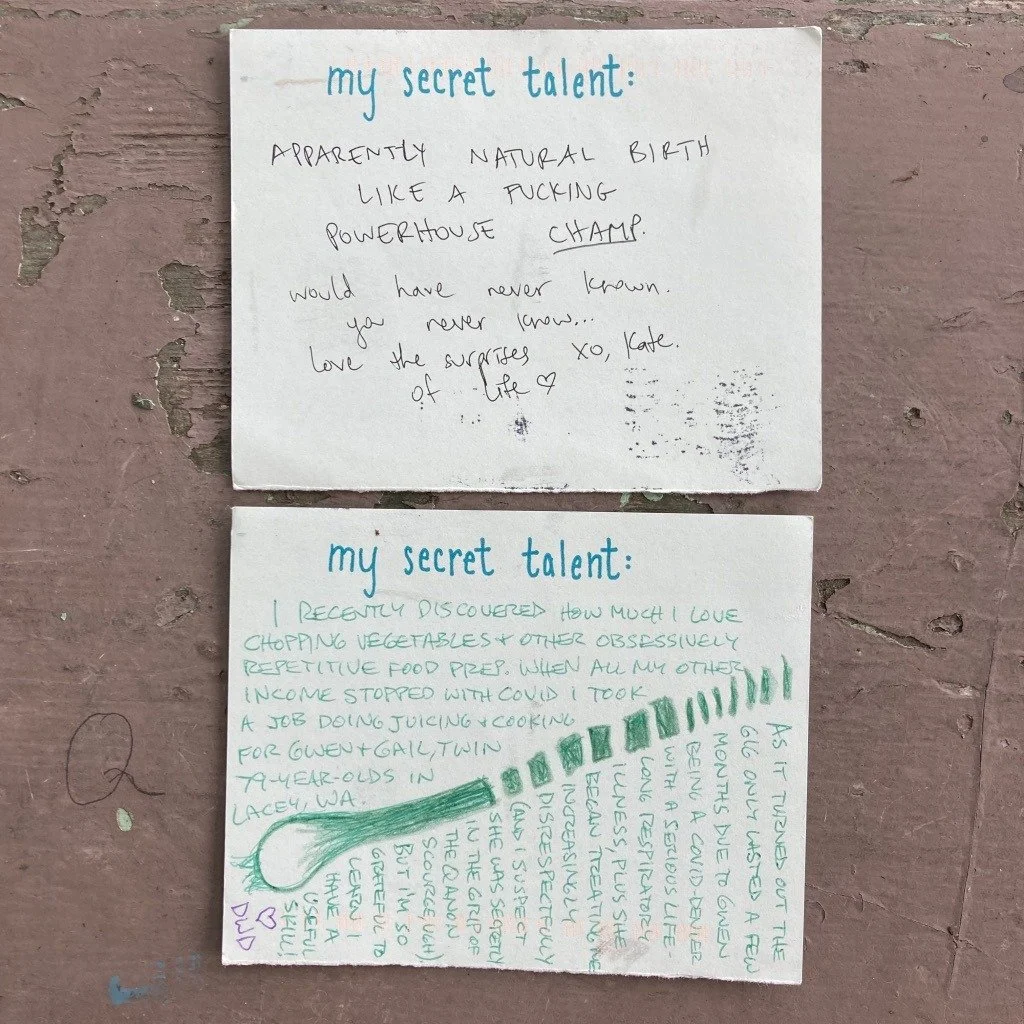 my secret talent:
APPARENTLY NATURAL BIRTH
LIKE A FUCKING
POWERHOUSE CHAMP.
would have never known.
you never know...
love the surprises xo, Kate.
of life ♡
my secret talent:
I RECENTLY DISCOVERED HOW MUCH I LOVE
CHOPPING VEGETABLES + OTHER OBSESSIVELY
REPETITIVE FOOD PREP. WHEN ALL MY OTHER
INCOME STOPPED WITH COVID I TOOK
A JOB DOING JUICING + COOKING
FOR GWEN + GAIL, TWIN
79-YEAR-OLDS IN
LACEY, WA.
AS IT TURNED OUT THE
GIG ONLY LASTED A FEW
MONTHS DUE TO GWEN
BEING A COVID-DENIER
WITH A SERIOUS LIFE-
LONG RESPIRATORY
ILLNESS, PLUS SHE
BEGAN TREATING ME
INCREASINGLY
DISRESPECTFULLY
(AND I SUSPECT
SHE WAS SECRETLY
IN THE GRIP OF
THE QANON
SCOURGE, UGH)
BUT I'M SO
GRATEFUL TO
LEARN I
HAVE A
USEFUL
SKILL!
♡
DWD
Q